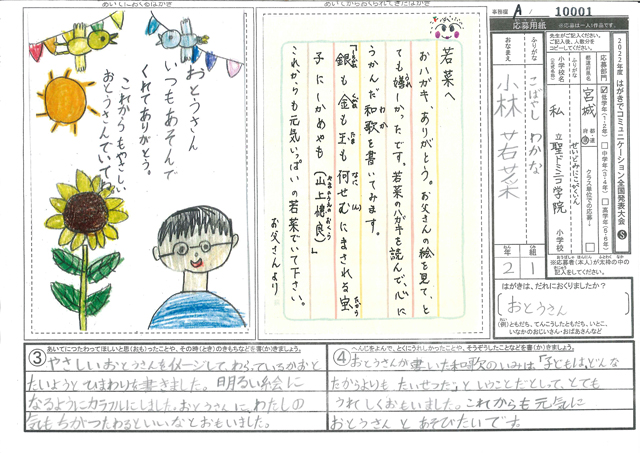 あいてにおくるはがき
おとうさん
いつもあそんで
くれてありがとう。
これからもやさしい
おとうさんでいてね
あいてからおくられてきたはがき
若菜へ
おハガキ、ありがとう。お父さんの絵を見て、と
ても嬉しかったです。若菜のハガキを読んで、心に
うかんだ和歌を書いてみます。
「銀も金も玉も何せむにまされる宝
子にしかめやも(山上憶良)」
これからも元気いっぱいの若菜でいて下さい。
お父さんより
A / 10001
応募用紙
※応募は一人1作品です。
2022年度 はがきでコミュニケーション全国発表大会
応募部門
低学年(1・2年)
中学年(3・4年)
高学年(5・6年)
都道府県名
宮城
都・道
府・県
クラス単位での応募
ふりがな
小学校名
せいどみにこがくいん
私立 聖ドミニコ学院 小学校
ふりがな
おなまえ
こばやし わかな
小林 若菜
年 組
2 1
※応募者(本人)が太枠の中の
記入をしてください。
はがきは、だれにおくりましたか?
おとうさん
(例)ともだち、てんこうしたともだち、いとこ、
いなかのおじいさん・おばあさんなど
③ あいてにつたわってほしいと思(おも)ったことや、その時(とき)のきもちなどを書(か)きましょう。
やさしいおとうさんをイメージして、わらっているかおと
たいようとひまわりを書きました。明るい絵に
なるようにカラフルにしました。おとうさんに、わたしの
気もちがつたわるといいなとおもいました。
④ へんじをよんで、とくにうれしかったことや、そうぞうしたことなどを書(か)きましょう。
おとうさんが書いた和歌のいみは、「子どもは、どんな
たからよりもたいせつだ」ということだとして、とても
うれしくおもいました。これからも元気に
おとうさんとあそびたいです。